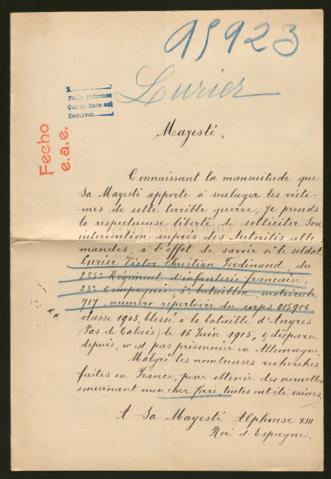 95923
Lurier
Pedir informes
Que se hace así
Devolver
Fecho
e.a.e.
Majesté,
Connaissant la mansuétude que
Sa Majesté apporte à soulager les victi-
mes de cette terrible guerre, Je prends
la respectueuse liberté de solliciter Son
intervention auprès des Autorités alle-
mandes, à l'effet de savoir si le soldat
Lurier Victor Chrétien Ferdinand du
Régiment d'infanterie française,
23e Compagnie, bataillon, matricule
717 numéro répertoire du corps
classe 1903, blessé à la bataille d'Angres
(Pas de Calais) le 15 Juin 1915, & disparu
depuis, n'est pas prisonnier en Allemagne.
Malgré les nombreuses recherches
faites en France, pour obtenir des nouvelles
concernant mon cher frère, toutes ont été vaines.
A Sa Majesté Alphonse XIII
Roi d'Espagne.